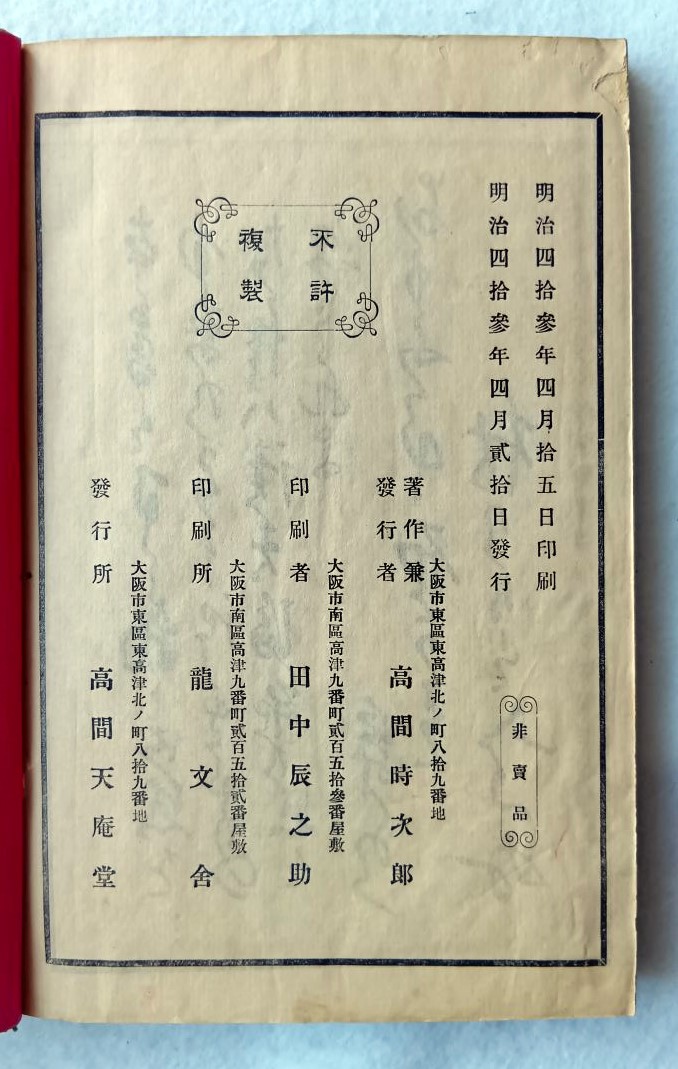 明治四拾參年四月拾五日印刷
明治四拾參年四月貳拾日發行
非賣品
不許
複製
大阪市東區東高津北ノ町八拾九番地
著作兼
發行者
高間時次郎
大阪市南區高津九番町貳百五拾參番屋敷
印刷者 田中辰之助
大阪市南區高津九番町貳百五拾貳番屋敷
印刷所 龍文舍
大阪市東區東高津北ノ町八拾九番地
發行所 高間天庵堂